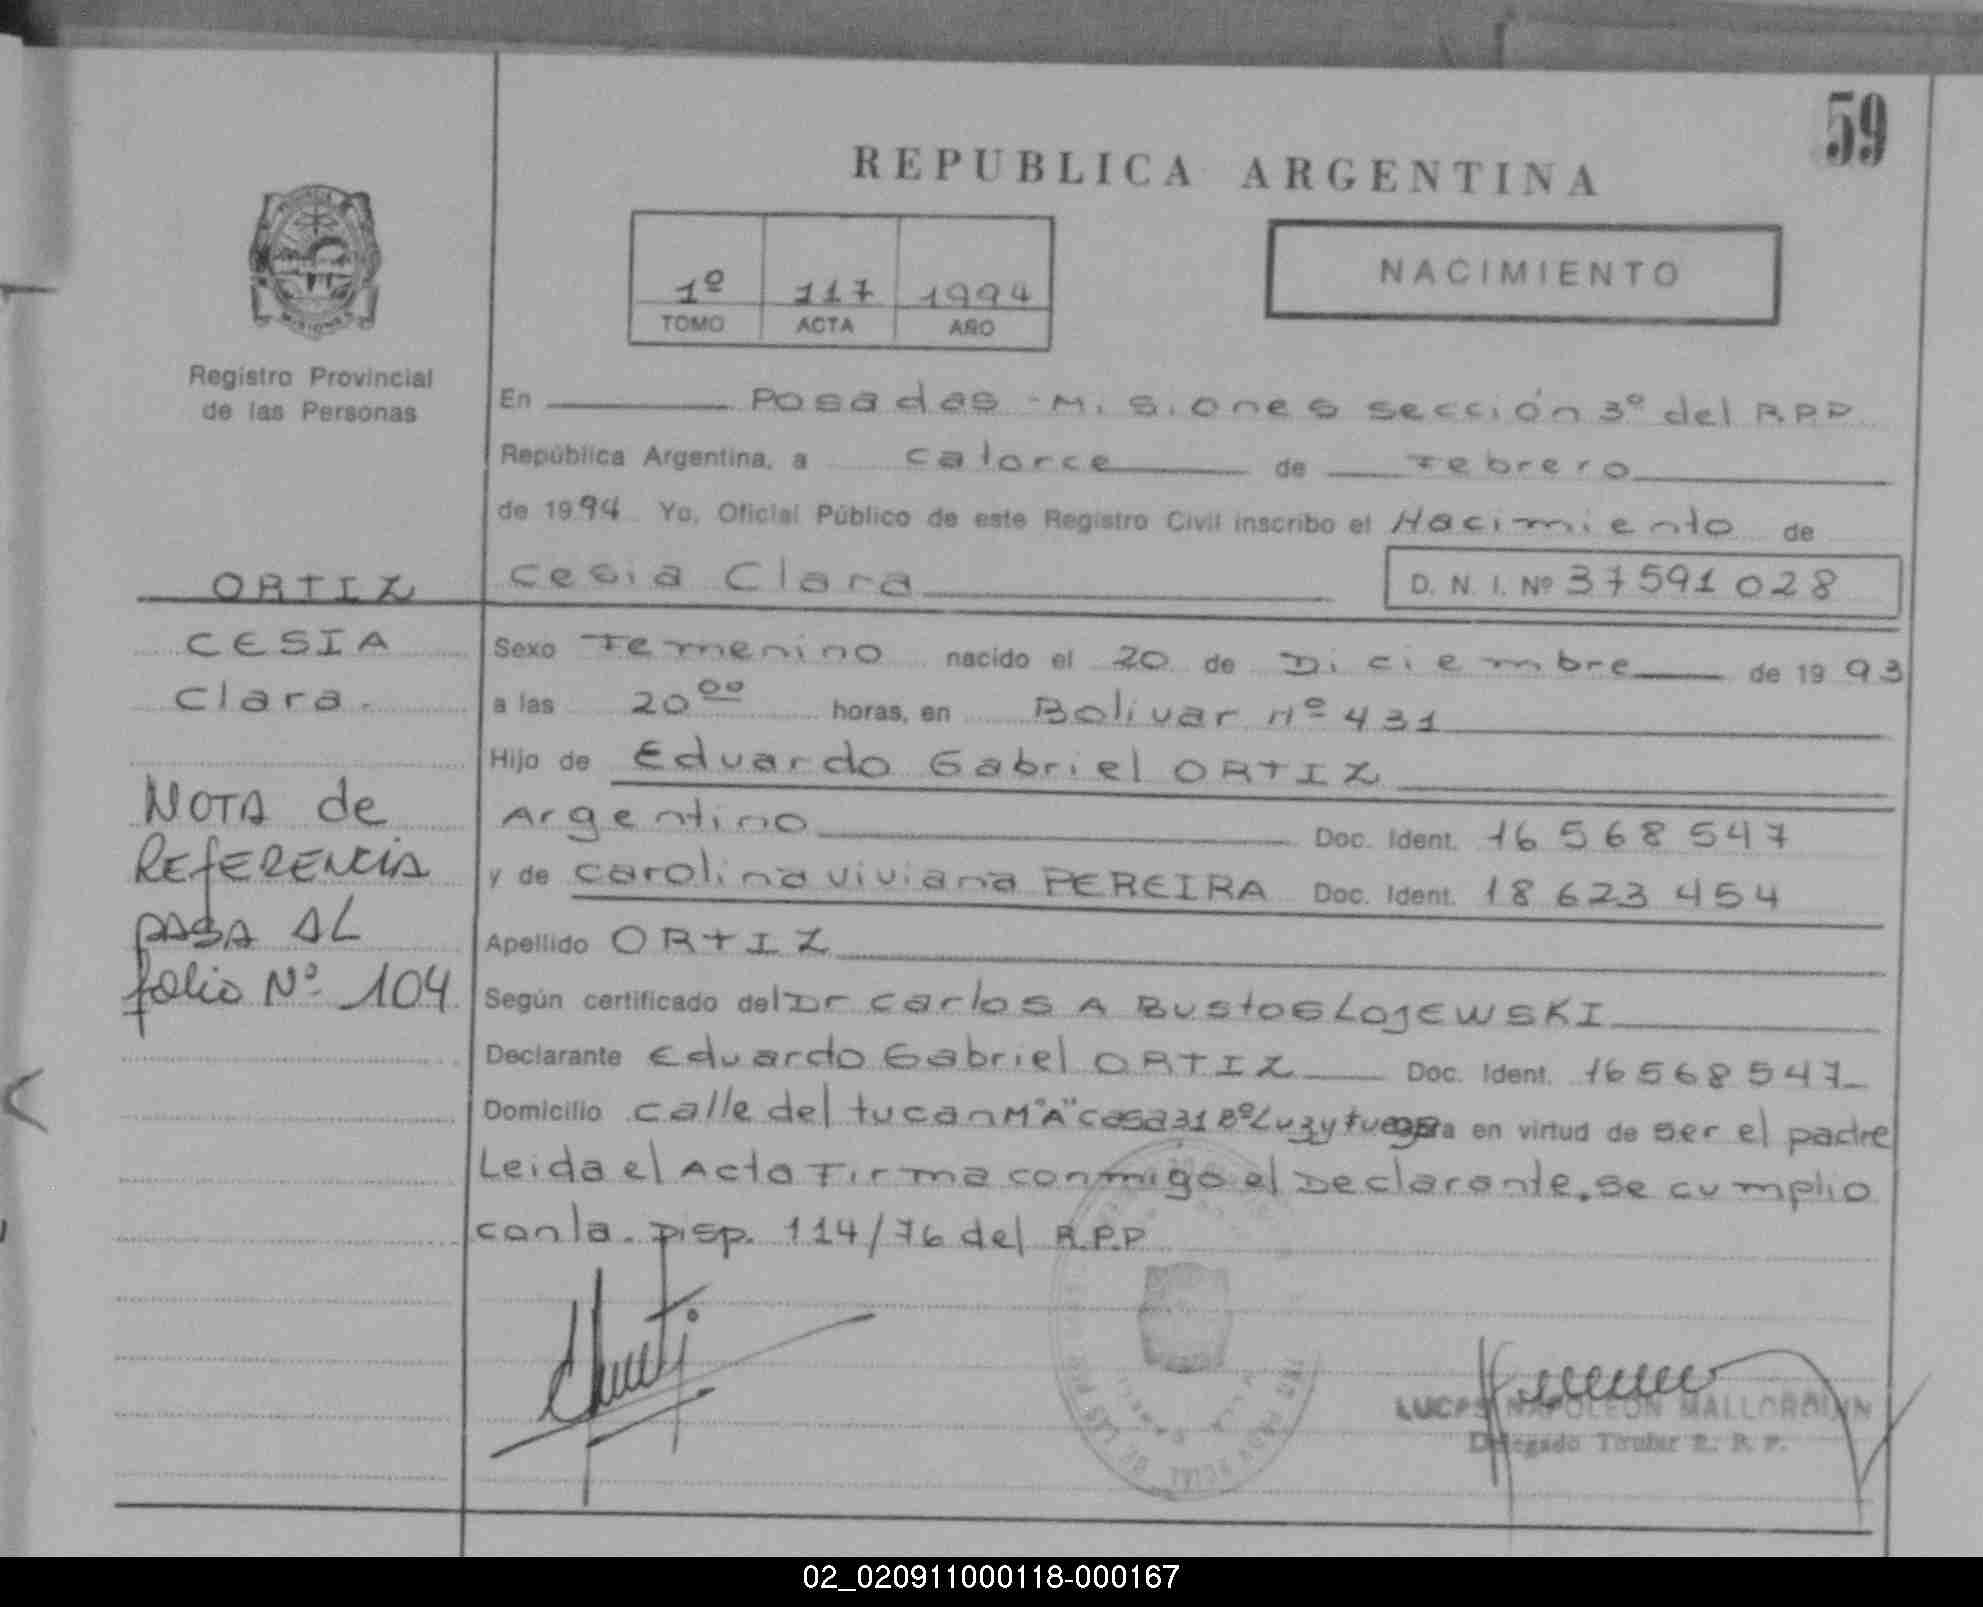 59
REPUBLICA ARGENTINA
1º 117 1994
TOMO ACTA AÑO
NACIMIENTO
MISIONES
Registro Provincial
de las Personas
En Posadas - Misiones sección 3º del R.P.P.
República Argentina, a catorce de Febrero
de 1994 Yo, Oficial Público de este Registro Civil inscribo el Nacimiento de
Cesia Clara D. N. I. Nº 37591028
Sexo Femenino nacido el 20 de Diciembre de 1993
a las 20ºº horas, en Bolivar Nº 431
Hijo de Eduardo Gabriel ORTIZ
Argentino Doc. Ident. 16 568 547
y de Carolina Viviana PEREIRA Doc. Ident. 18 623 454
Apellido ORTIZ
Según certificado del Dr Carlos A Bustos LOJEWSKI
Declarante Eduardo Gabriel ORTIZ Doc. Ident. 16568547
Domicilio calle del tucan M"A" casa 31 Bº Luz y fuerza en virtud de ser el padre
Leida el Acta Firma conmigo el Declarante. se cumplio
con la. Disp. 114/76 del R.P.P
ORTIZ
CESIA
Clara.
NOTA de
REFERENCIA
PASA AL
folio Nº 104
LUCAS NAPOLEON MALLORQUIN
Delegado Titular R. P. P.
02_020911000118-000167